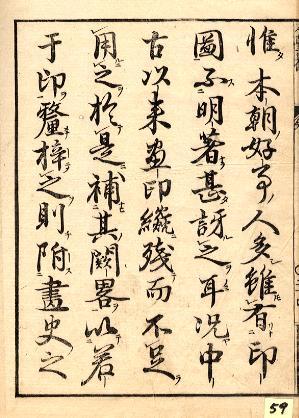 惟 本朝好事人多雖有印
圖不明著甚訝之耳況中
古以来畫印纔残而不足
用之於是補其闕畧以若
于印釐梓之則附畫史之
59